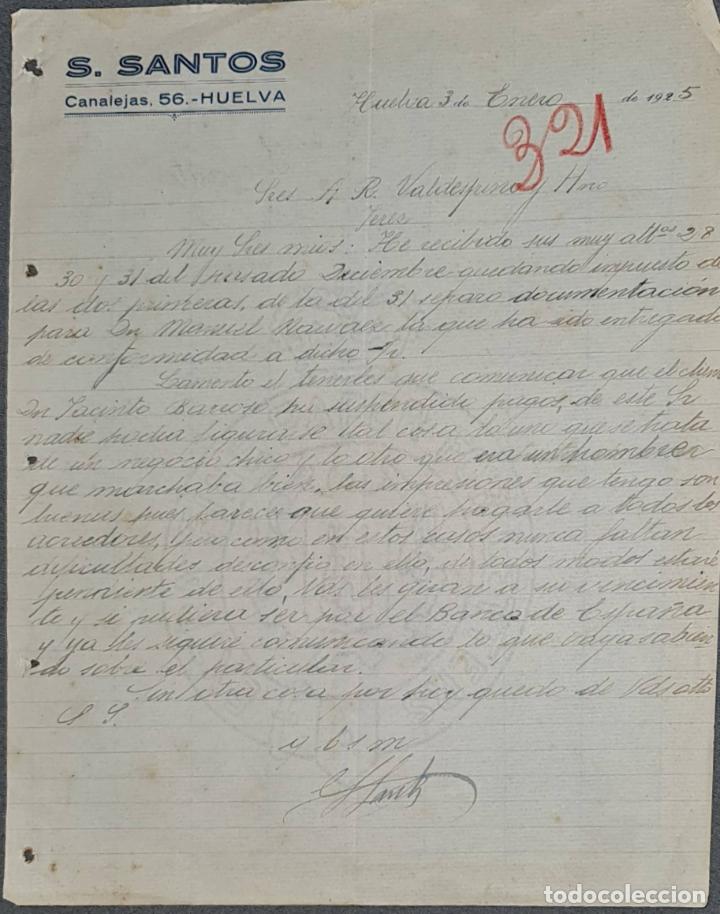 S. SANTOS
Canalejas, 56.-HUELVA
Huelva 3 de Enero de 1925
321
Sres A. R. Valdespino y Hno
Jerez
Muy Sres mios: He recibido sus muy attas 28
30 y 31 del pasado Diciembre quedando impuesto de
las dos primeras, de la del 31 separo documentación
para Dn Manuel la que ha sido entregada
de conformidad a dicho Sr.
Lamento el tenerles que comunicar que el cliente
Dn Jacinto Barroso ha suspendido pagos, de este Sr
nadie podia figurarse tal cosa lo uno que se trata
de un negocio chico y lo otro que era un hombre
que marchaba bien, las impresiones que tengo son
buenas pues parece que quiere pagarle a todos los
acreedores, pero como en estos casos nunca faltan
dificultades desconfio en ello, de todos modos estaré
pendiente de ello, Vds les giran a su vencimien
to y si pudiera ser por el Banco de España
y ya les seguiré comunicando lo que vaya sabien
do sobre el particular.
Sin otra cosa por hoy quedo de Vds atto
S S.
q b s m
S Santos
todocoleccion